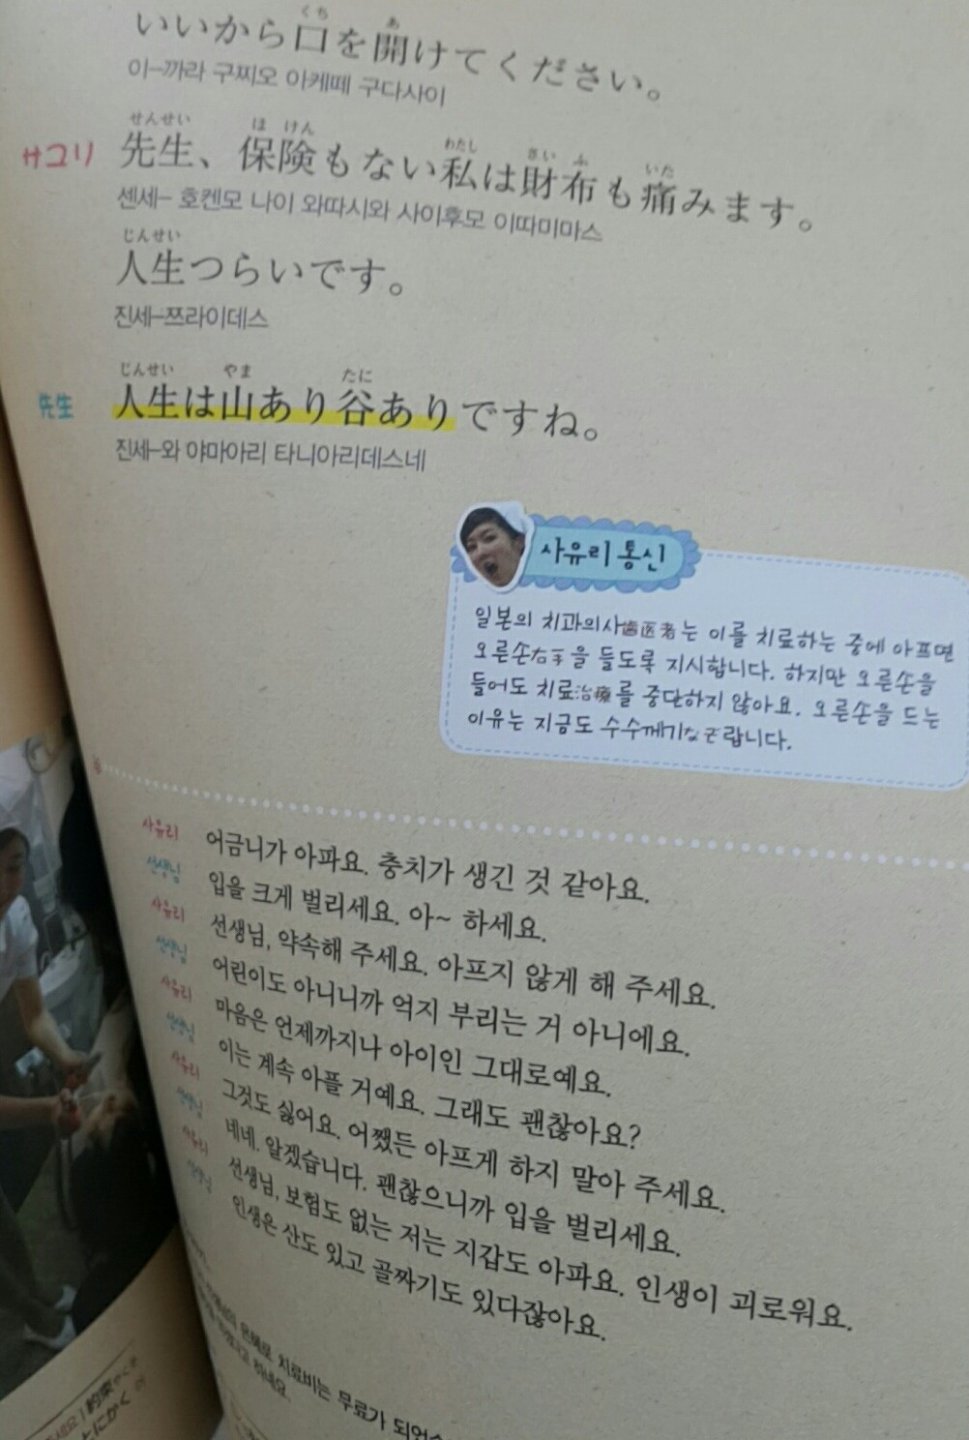 いいから口を開けてください。
이-까라 구찌오 아케떼 구다사이
サユリ 先生、保険もない私は財布も痛みます。
센세- 호켄모 나이 와따시와 사이후모 이따미마스
人生つらいです。
진세-쯔라이데스
先生 人生は山あり谷ありですね。
진세-와 야마아리 타니아리데스네
사유리 통신
일본의 치과의사歯医者는 이를 치료하는 중에 아프면
오른손右手을 들도록 지시합니다. 하지만 오른손을
들어도 치료治療를 중단하지 않아요. 오른손을 드는
이유는 지금도 수수께기なぞ랍니다.
사유리 어금니가 아파요. 충치가 생긴 것 같아요.
선생님 입을 크게 벌리세요. 아~ 하세요.
사유리 선생님, 약속해 주세요. 아프지 않게 해 주세요.
선생님 어린이도 아니니까 억지 부리는 거 아니에요.
사유리 마음은 언제까지나 아이인 그대로예요.
선생님 이는 계속 아플 거예요. 그래도 괜찮아요?
사유리 그것도 싫어요. 어쨌든 아프게 하지 말아 주세요.
선생님 네네. 알겠습니다. 괜찮으니까 입을 벌리세요.
사유리 선생님, 보험도 없는 저는 지갑도 아파요. 인생이 괴로워요.
선생님 인생은 산도 있고 골짜기도 있다잖아요.
은혜로 치료비는 무료가 되었
하네요.
約束